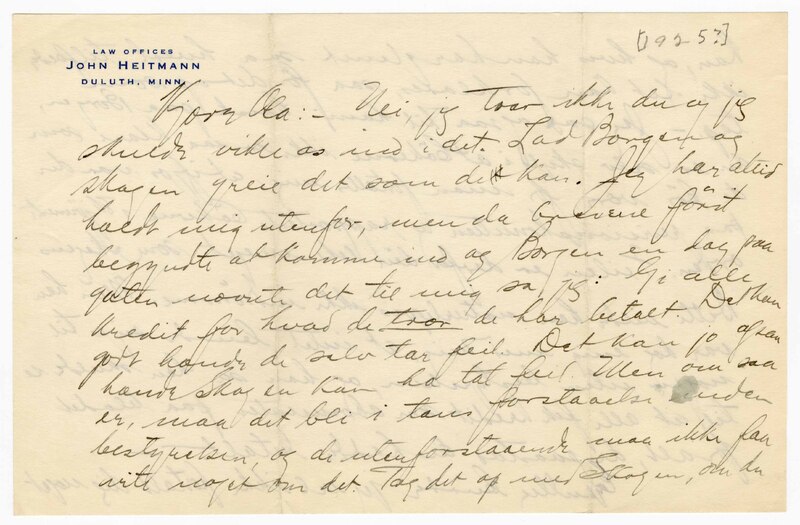 [1925?]
LAW OFFICES
JOHN HEITMANN
DULUTH, MINN.
Kjære Ola:- Nei jeg troer ikke du og jeg
skulde vikle os ind i det. Lad Borgen og
Skogen greie det som de kan. Jeg har altid
holdt mig utenfor, men da brevene först
begyndte at komme ind og Borgen en dag paa
gaten nævnte det til mig sa jeg: Gi alle
kredit for hvad de troer de har betalt. Det kan
godt hænde de selv tar feil. Det kan jo ogsaa
hænde Skogen kan ha tat feil. Men om saa
er, maa det bli i taus forstaaelse inden
bestyrelsen, og de utenforstaaende maa ikke faa
vite noget om det. Tag det op med Skogen, om du